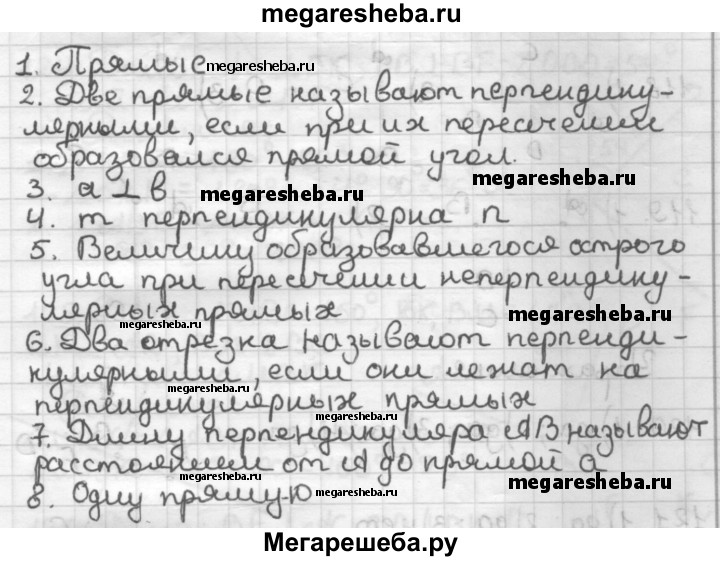 megaresheba.ru
1. Прямые megaresheba.ru
2. Две прямые называют перпендику-
лярными, если при их пересечении
образовался прямой угол.
megaresheba.ru
3. a ⊥ b megaresheba.ru
4. m перпендикулярна n
5. Величину образовавшегося острого
угла при пересечении неперпендику-
лярных прямых megaresheba.ru
megaresheba.ru
6. Два отрезка называют перпенди-
кулярными, если они лежат на
megaresheba.ru
перпендикулярных прямых
megaresheba.ru
7. Длину перпендикуляра AB называют
расстоянием от A до прямой a
megaresheba.ru
8. Одну пряму-ю megaresheba.ru megaresheba.ru
Мегарешеба.ру